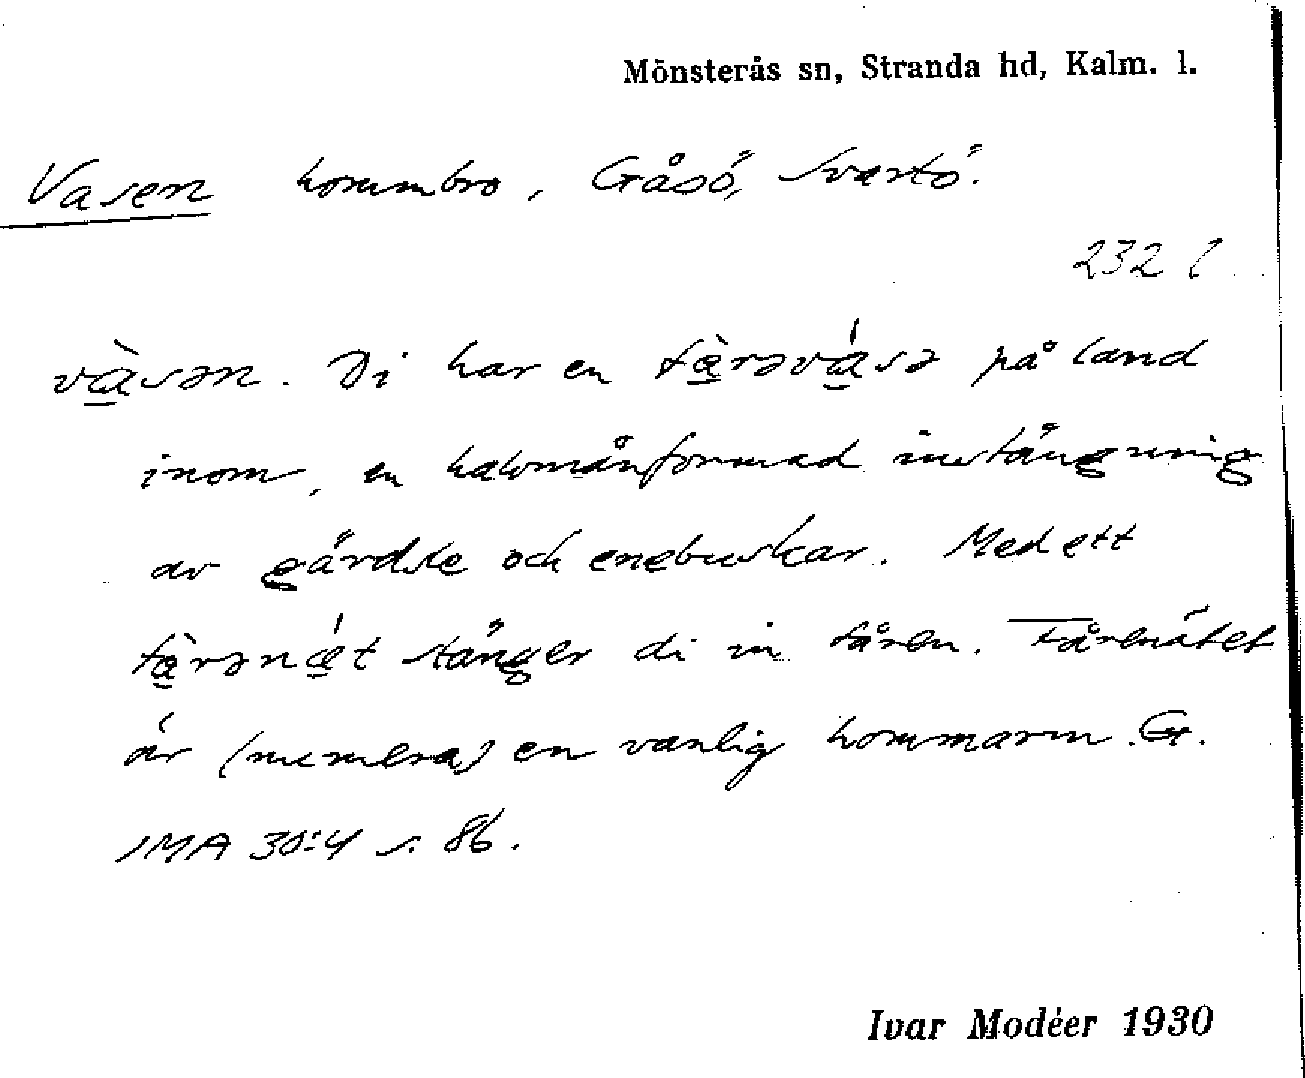 Mönsterås sn, Stranda hd, Kalm. l.
Vasen hommbro, Gåsö, Svartö.
232
vàsən. Di har en fä̀rəvásə på land
inom, en halvmånformad instängning
av gärdsle och enebuskar. Med ett
fä̀rənǽt stänger di in fåren. Fårenätet
är (numera) en vanlig hommarm. G.
IMA 30:4 s. 86.
Ivar Modéer 1930